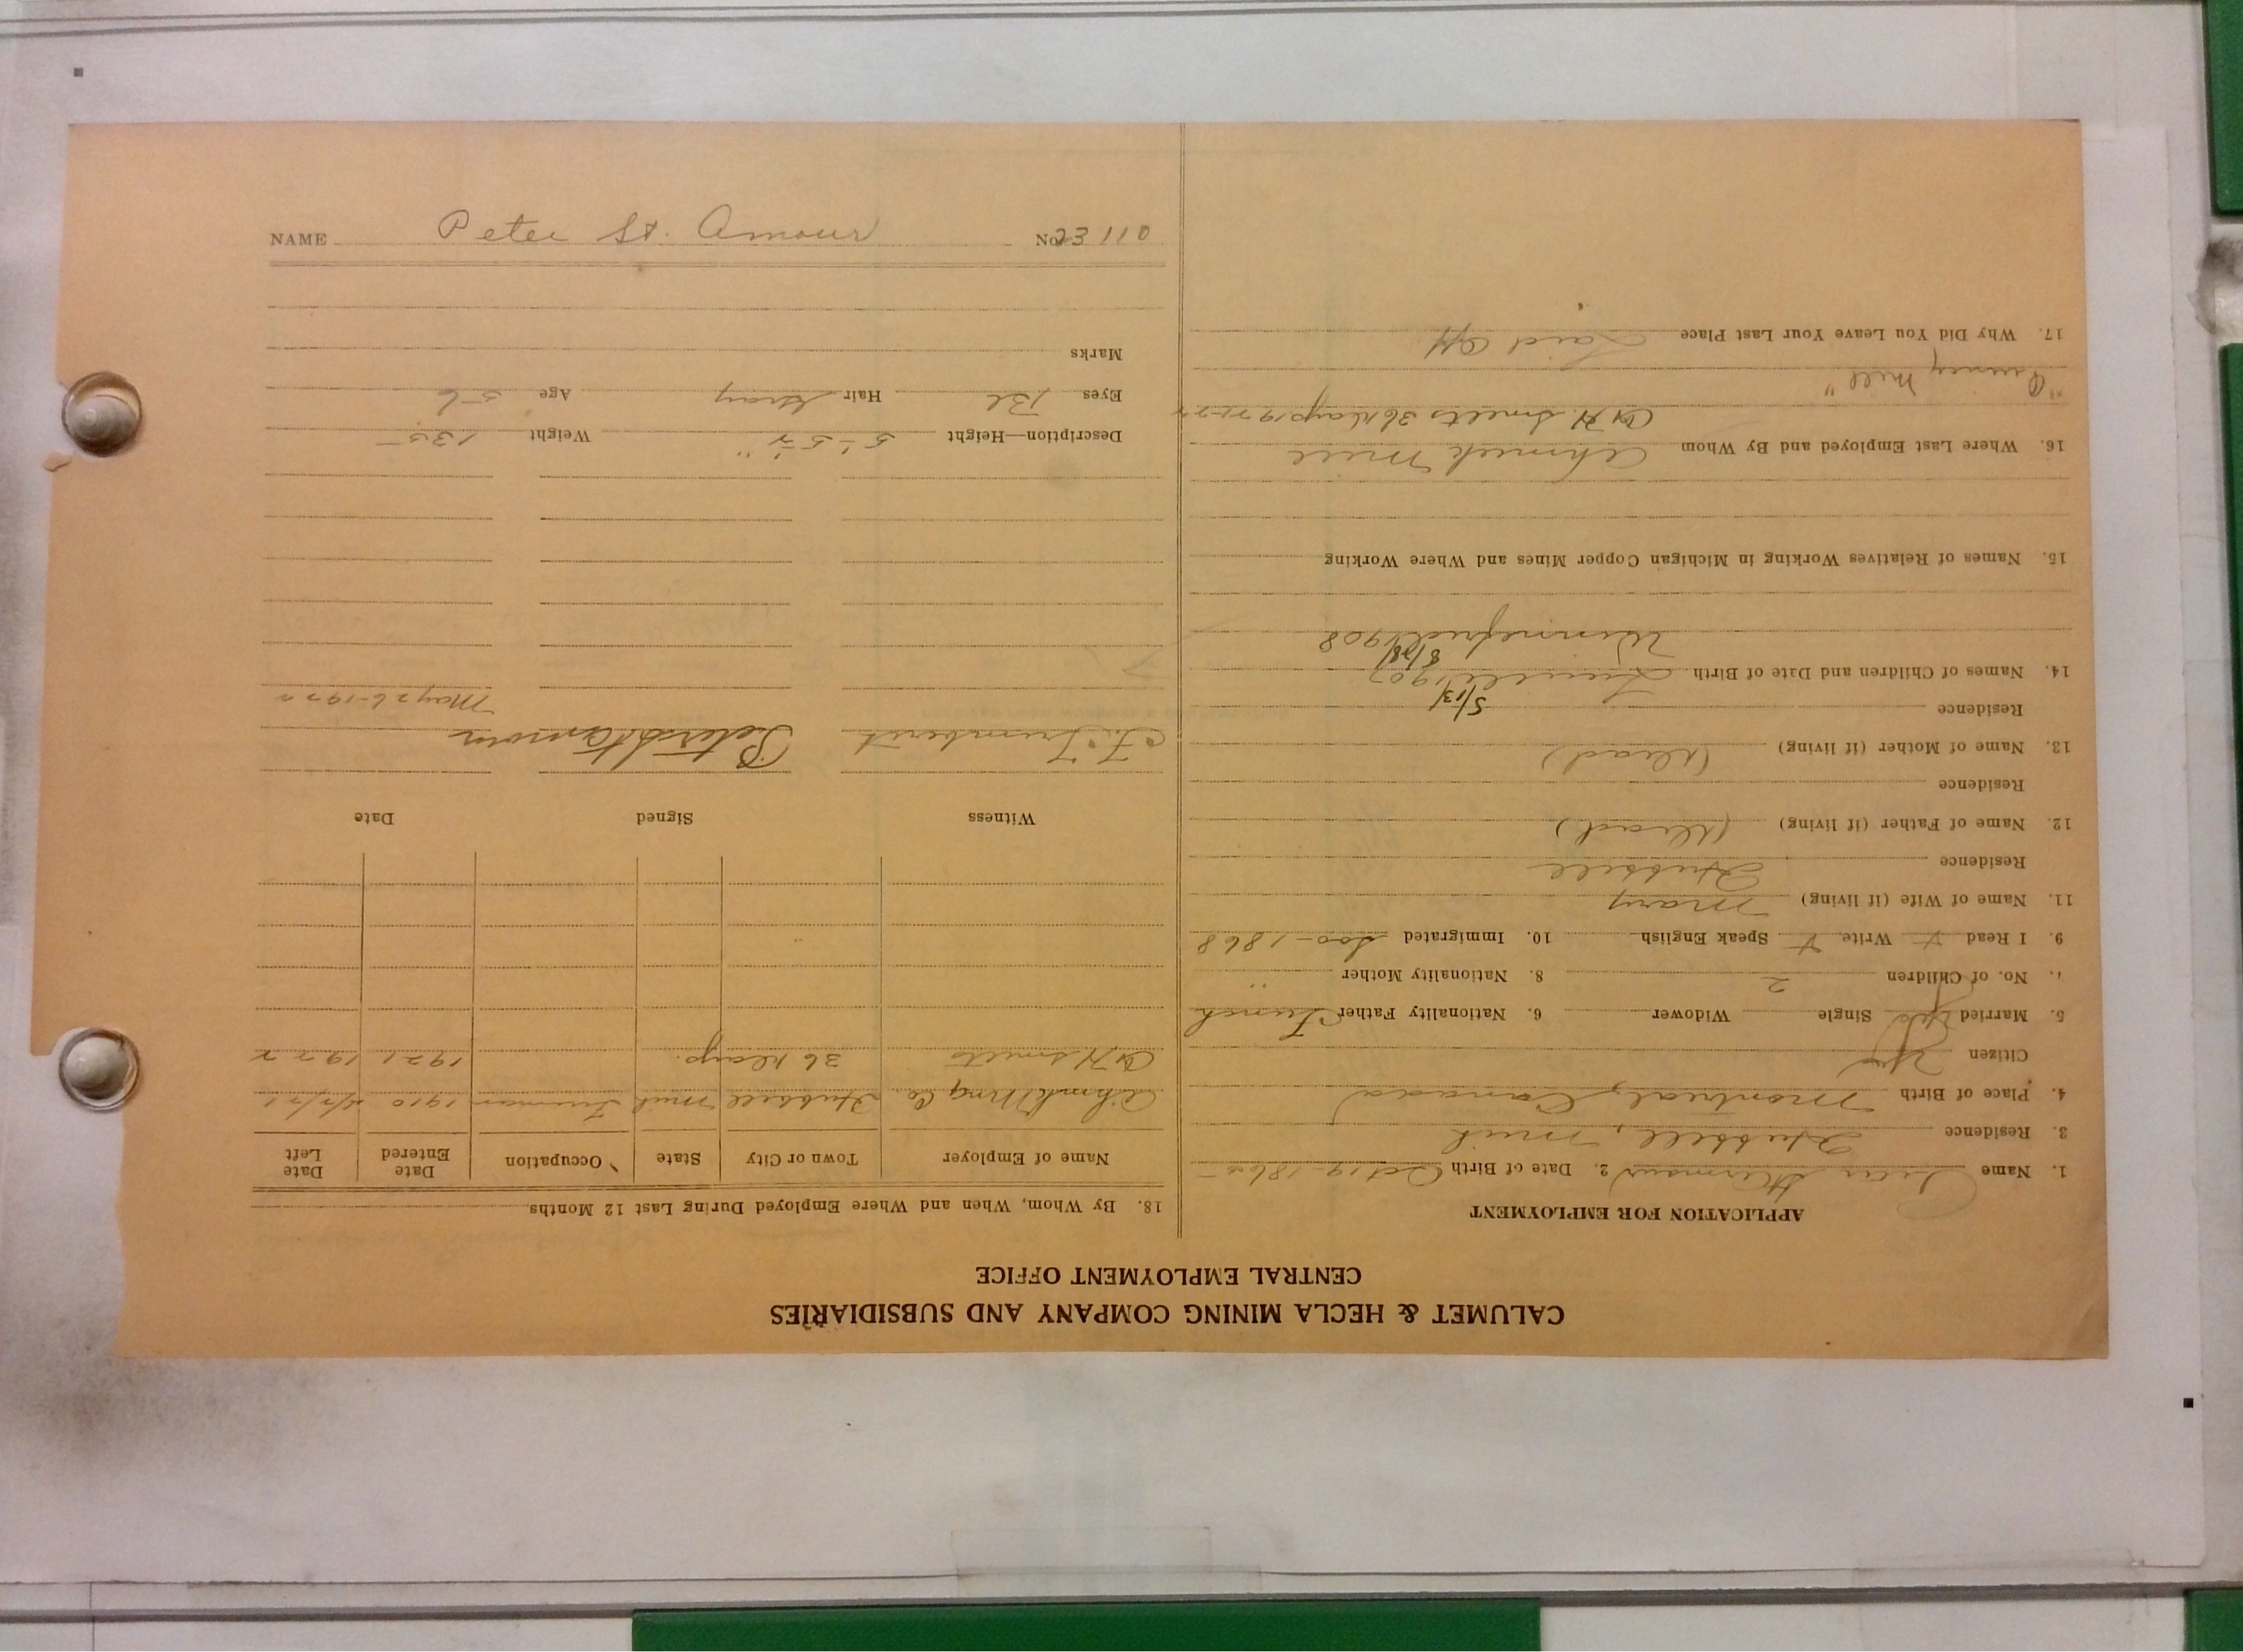 CALUMET & HECLA MINING COMPANY AND SUBSIDIARIES
CENTRAL EMPLOYMENT OFFICE
APPLICATION FOR EMPLOYMENT
1. Name Peter St Amour 2. Date of Birth Oct 19-1865
3. Residence Hubbell, Mich
4. Place of Birth Montreal, Canada
Citizen Yes
5. Married Yes Single Widower 6. Nationality Father French
7. No. of Children 2 8. Nationality Mother "
9. I Read + Write + Speak English 10. Immigrated Soo-1868
11. Name of Wife (if living) Mary
Residence Hubbell
12. Name of Father (if living) (Dead)
Residence
13. Name of Mother (if living) (Dead)
Residence
5/13/
14. Names of Children and Date of Birth 1907
8/28/
Winnefred 1908
15. Names of Relatives Working in Michigan Copper Mines and Where Working
16. Where Last Employed and By Whom Ahmeek Mill
C&H. Smelts 36 Days 1921-22
Mill"
17. Why Did You Leave Your Last Place Laid Off
18. By Whom, When and Where Employed During Last 12 Months
Name of Employer Town or City State Occupation Date Entered Date Left
Ahmk Mng Co. Hubbell Mich Fireman 1910 4/1/21
C&H Smelts 36 Days. 1921 1922
Witness Signed Date
Peter St Amour May 26-1922
Description—Height 5'-5½" Weight 135
Eyes Bl Hair Gray Age 56
Marks
NAME Peter St. Amour No. 23110